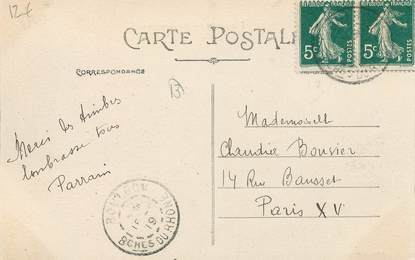 12€
CARTE POSTALE
RÉPUBLIQUE FRANÇAISE
5c POSTES
5c POSTES
CORRESPONDANCE
13
Merci des timbres
t'embrasse tous
Parrain
Mademoiselle
Claudie Bouvier
14 Rue Bausset
Paris XV
19
BCHES DU RHONE